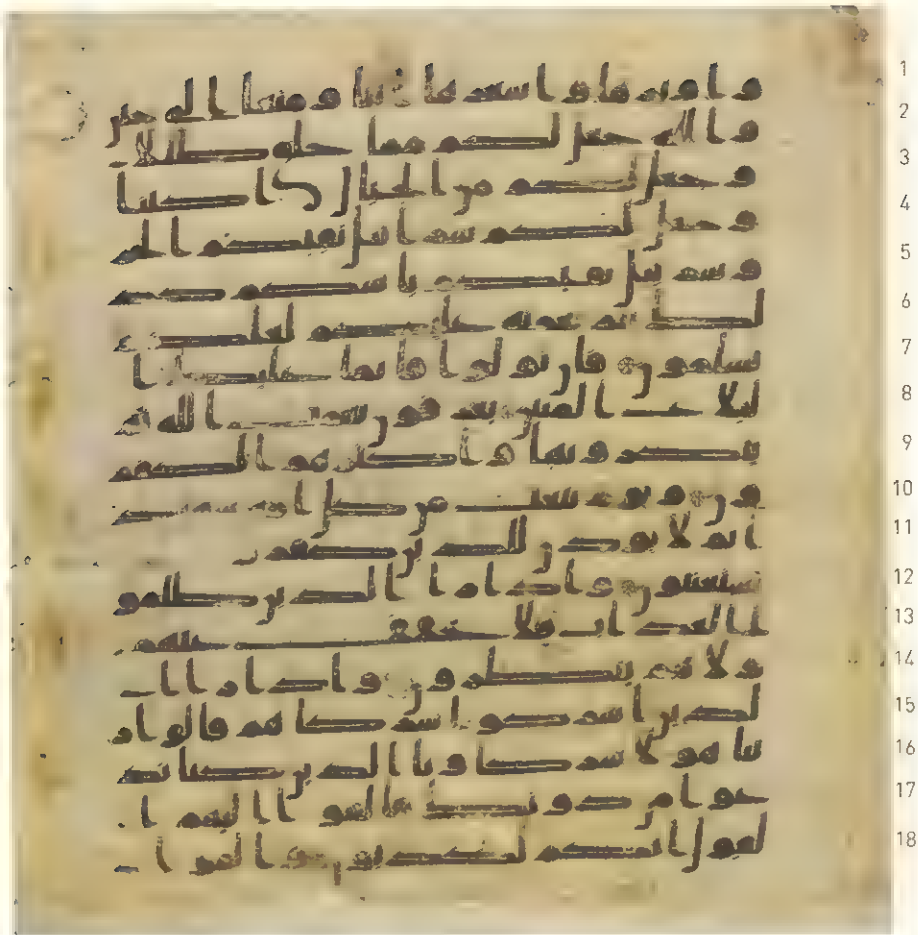 1 و اوبرها و اشعرها اثثا و متعا الى حين
2 و الله جعل لكم مما خلق ظللا
3 و جعل لكم من الجبال اكننا
4 و جعل لكم سربيل تقيكم الحر
5 و سربيل تقيكم باسكم كذ
6 لك يتم نعمته عليكم لعلكم
7 تسلمون فان تولوا فانما عليك ا
8 لبلغ المبين يعرفون نعمت الله ثم
9 ينكرونها و اكثرهم الكفر
10 ون و يوم نبعث من كل امة شهيد
11 ا ثم لا يوذن للذين كفروا
12 يستعتبون و اذا را الذين ظلمو
13 ا العذاب فلا يخفف عنهم
14 و لا هم ينظرون و اذا را ا
15 لذين اشركوا شركاهم قالوا ر
16 بنا هولا شركاونا الذين كنا ند
17 عوا من دونك فالقوا اليهم ا
18 لقول انكم لكذبون و القوا ا